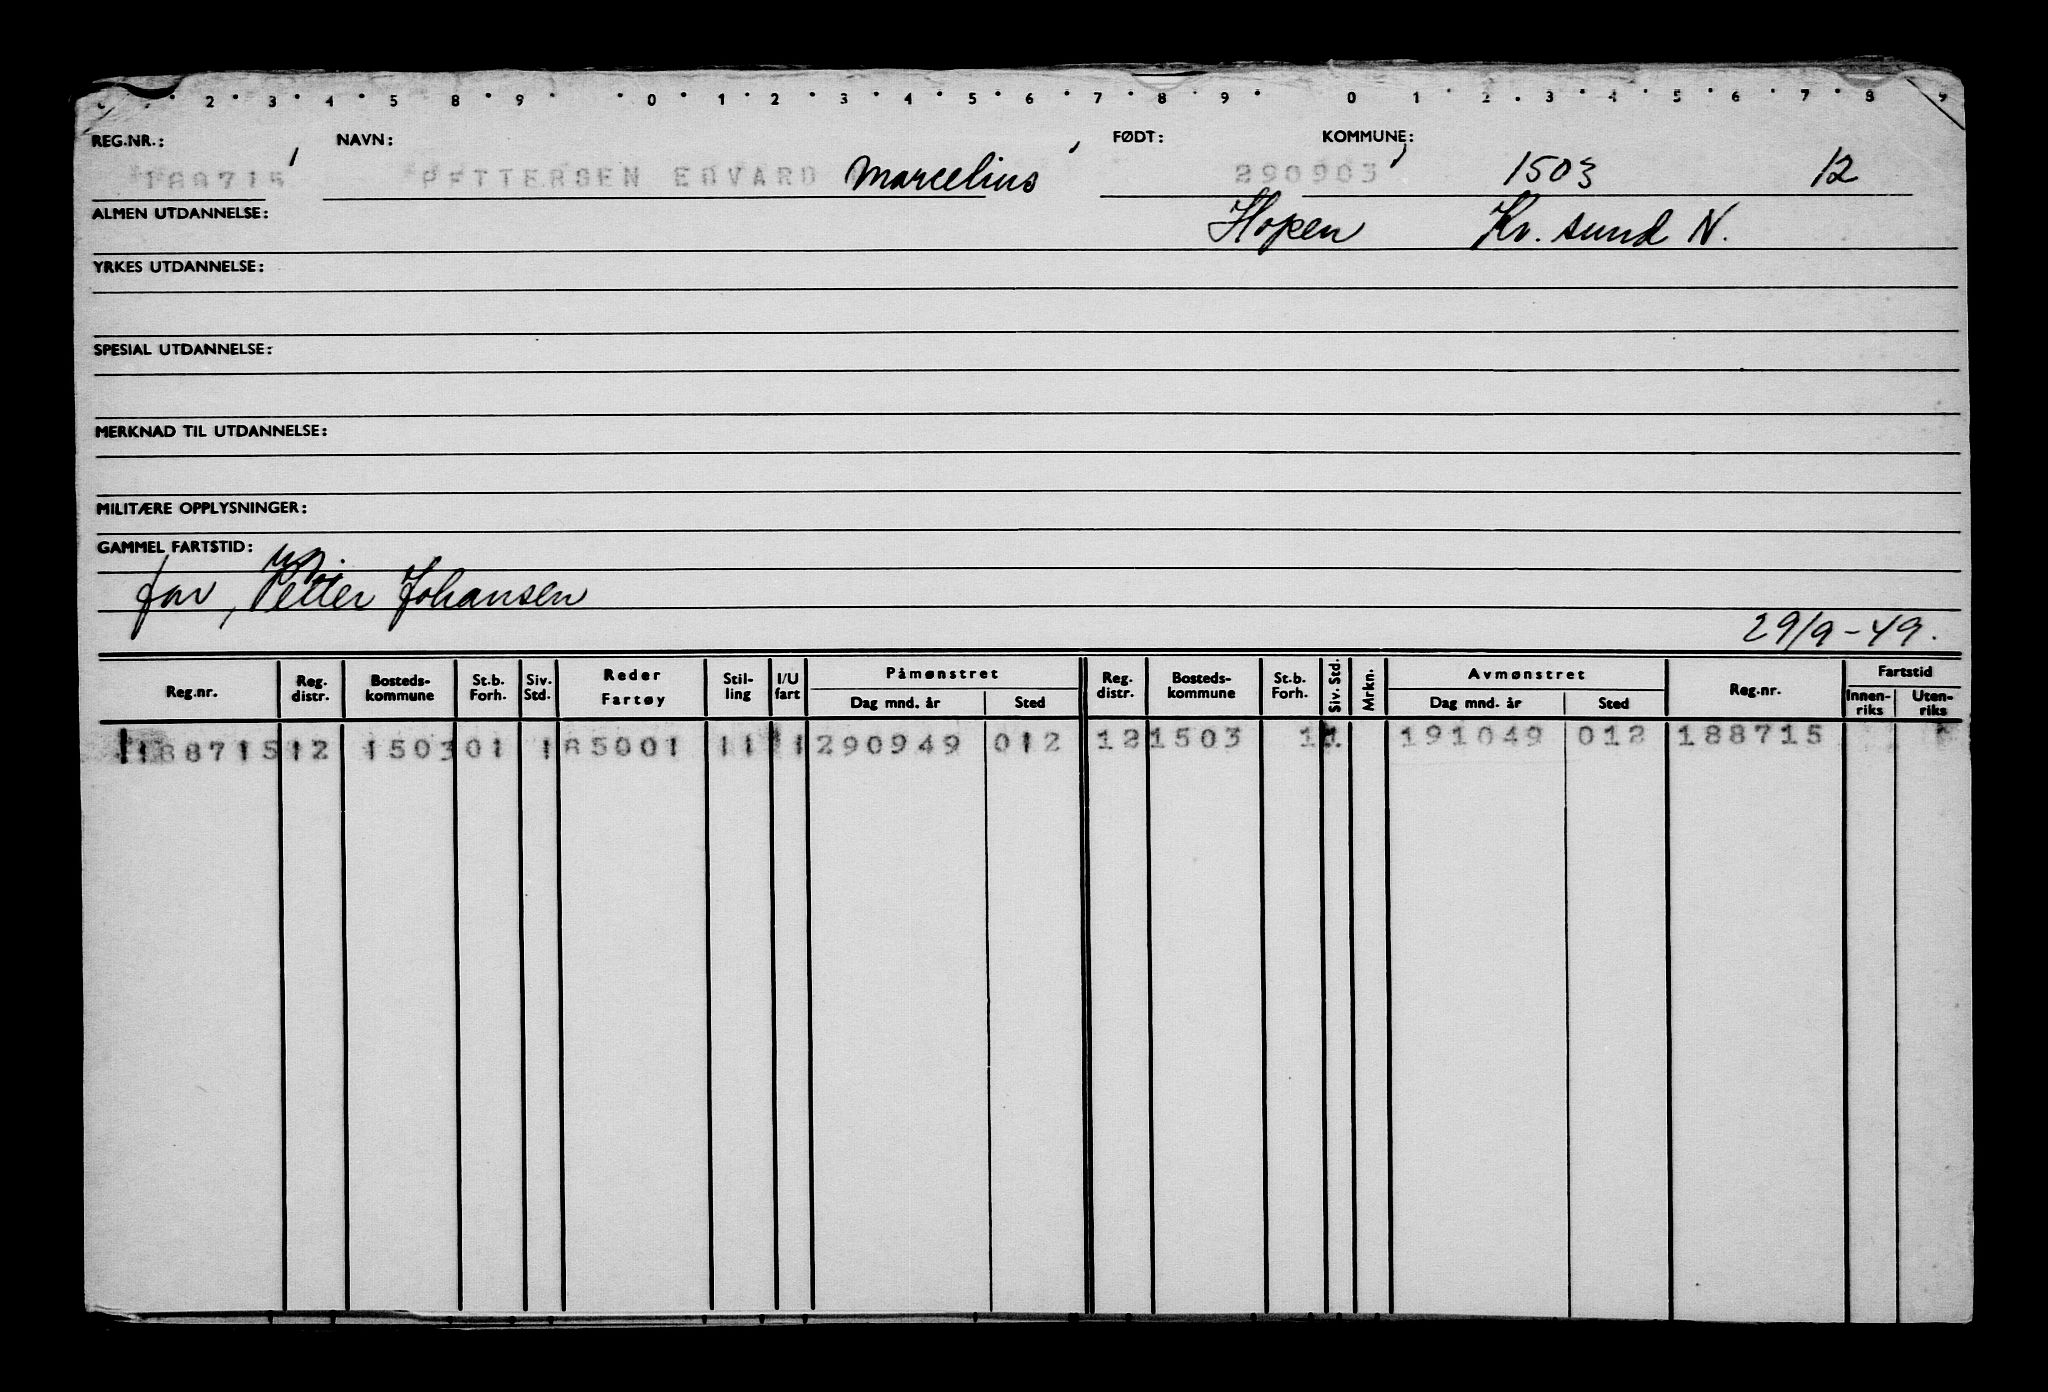 2 3 4 5 8 9 0 1 2 3 4 5 6 7 8 9 0 1 2 3 4 5 6 7 8 9
REG.NR.: NAVN: FØDT: KOMMUNE:
188715 PETTERSEN EDVARD Marcelius 290903 1503 12
ALMEN UTDANNELSE: Hopen Kr. sund N.
YRKES UTDANNELSE:
SPESIAL UTDANNELSE:
MERKNAD TIL UTDANNELSE:
MILITÆRE OPPLYSNINGER:
GAMMEL FARTSTID:
far, Petter Johansen
29/9-49.
Reg.nr. Reg. distr. Bosteds-kommune St.b. Forh. Siv. Std. Reder Fartøy Stil-ling I/U fart Påmønstret Dag mnd. år Sted Reg. distr. Bosteds-kommune St.b. Forh. Siv. Std. Mrkn. Avmønstret Dag mnd. år Sted Reg.nr. Fartstid Innen-riks Uten-riks
188715 12 1503 01 1 85001 11 1 290949 012 12 1503 1 1 191049 012 188715